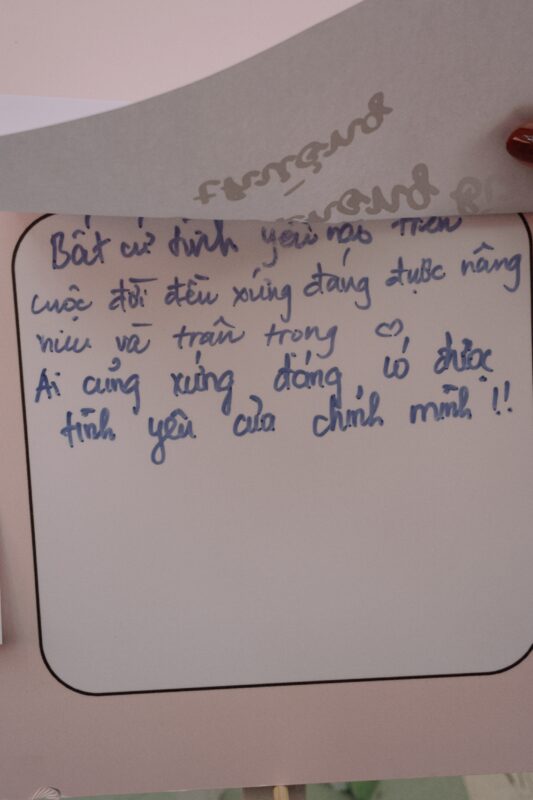 Bất cứ tình yêu nào trên
cuộc đời đều xứng đáng được nâng
niu và trân trọng ♡
Ai cũng xứng đáng có được
tình yêu của chính mình !!